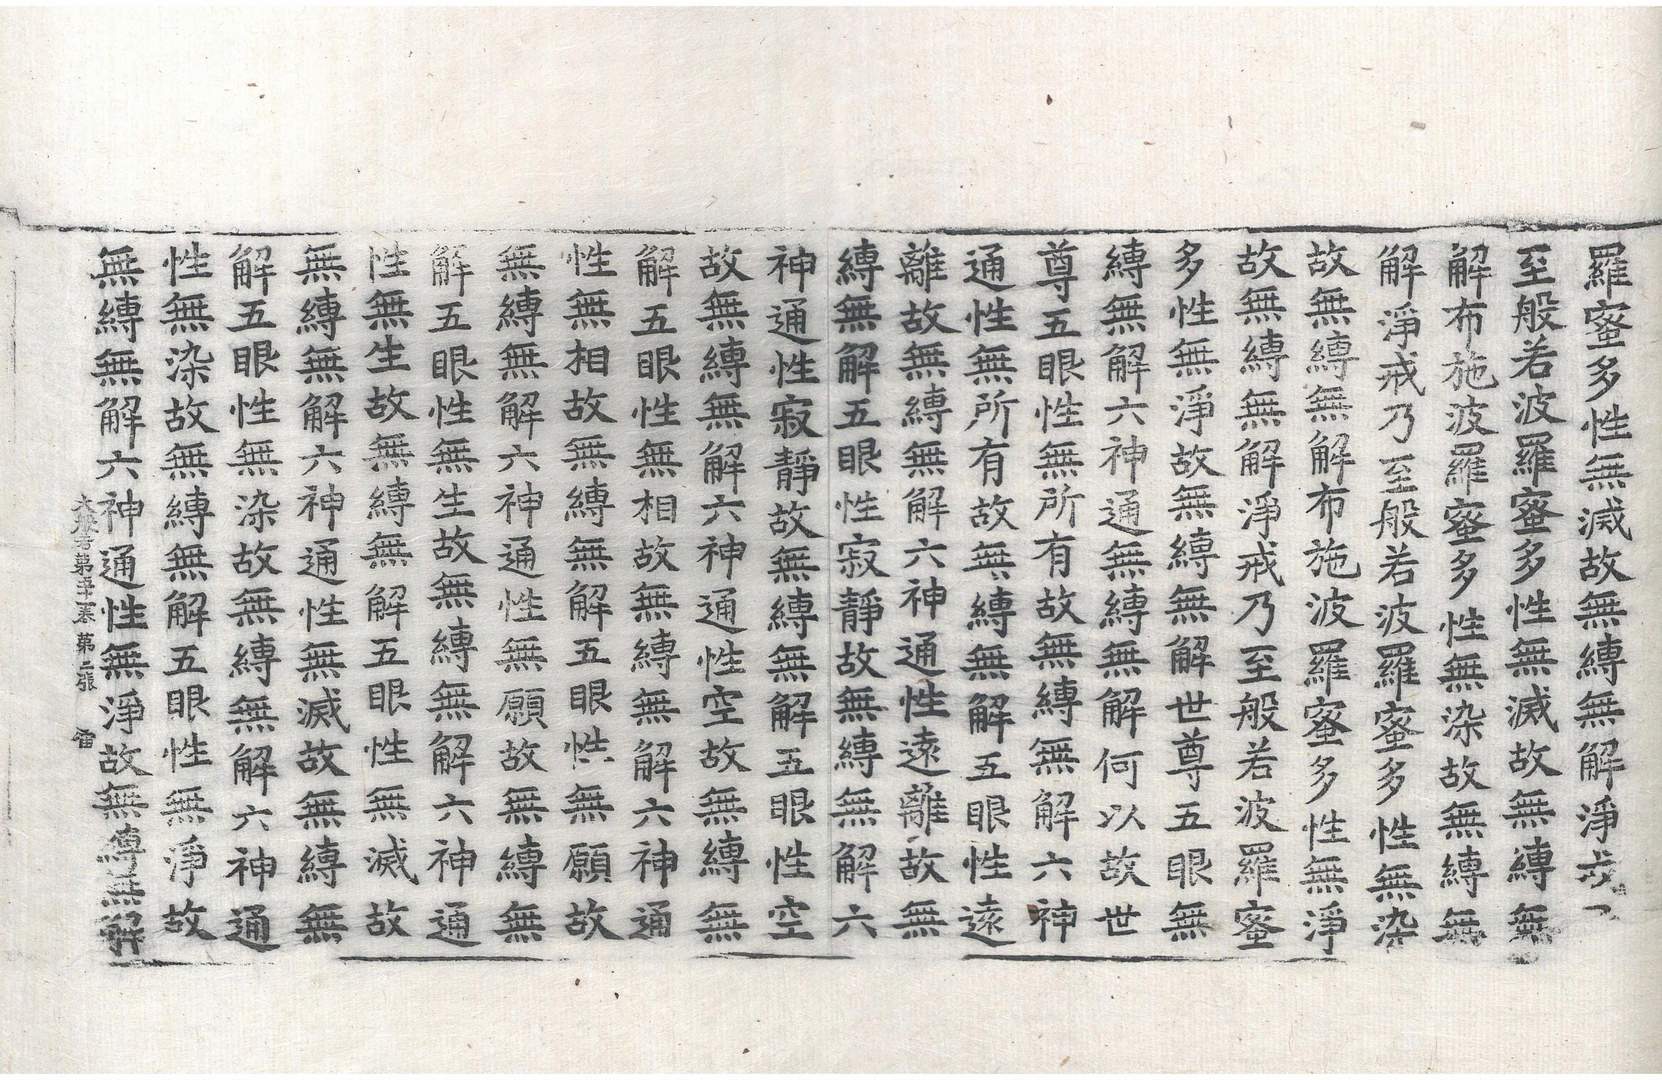 羅蜜多性無滅故無縛無解淨戒
至般若波羅蜜多性無滅故無縛無
解布施波羅蜜多性無染故無縛無
解淨戒乃至般若波羅蜜多性無染
故無縛無解布施波羅蜜多性無淨
故無縛無解淨戒乃至般若波羅蜜
多性無淨故無縛無解世尊五眼無
縛無解六神通無縛無解何以故世
尊五眼性無所有故無縛無解六神
通性無所有故無縛無解五眼性遠
離故無縛無解六神通性遠離故無
縛無解五眼性寂靜故無縛無解六
神通性寂靜故無縛無解五眼性空
故無縛無解六神通性空故無縛無
解五眼性無相故無縛無解六神通
性無相故無縛無解五眼性無願故
無縛無解六神通性無願故無縛無
解五眼性無生故無縛無解六神通
性無生故無縛無解五眼性無滅故
無縛無解六神通性無滅故無縛無
解五眼性無染故無縛無解六神通
性無染故無縛無解五眼性無淨故
無縛無解六神通性無淨故無縛無解
大般若第卷 第二張